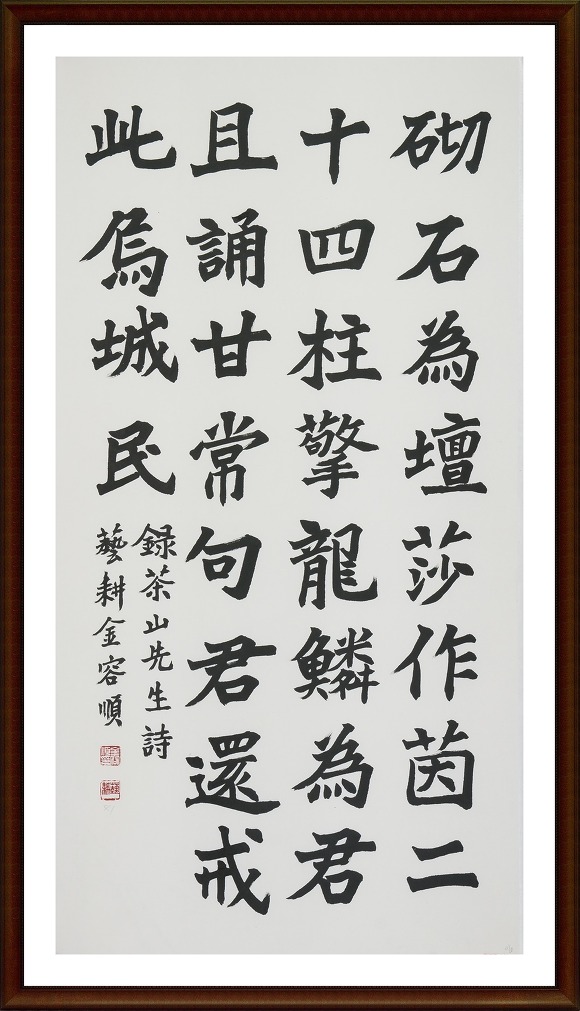 砌石為壇莎作茵二
十四柱擎龍鱗為君
且誦甘常句君還戒
此烏城民
録茶山先生詩
藝耕金容順